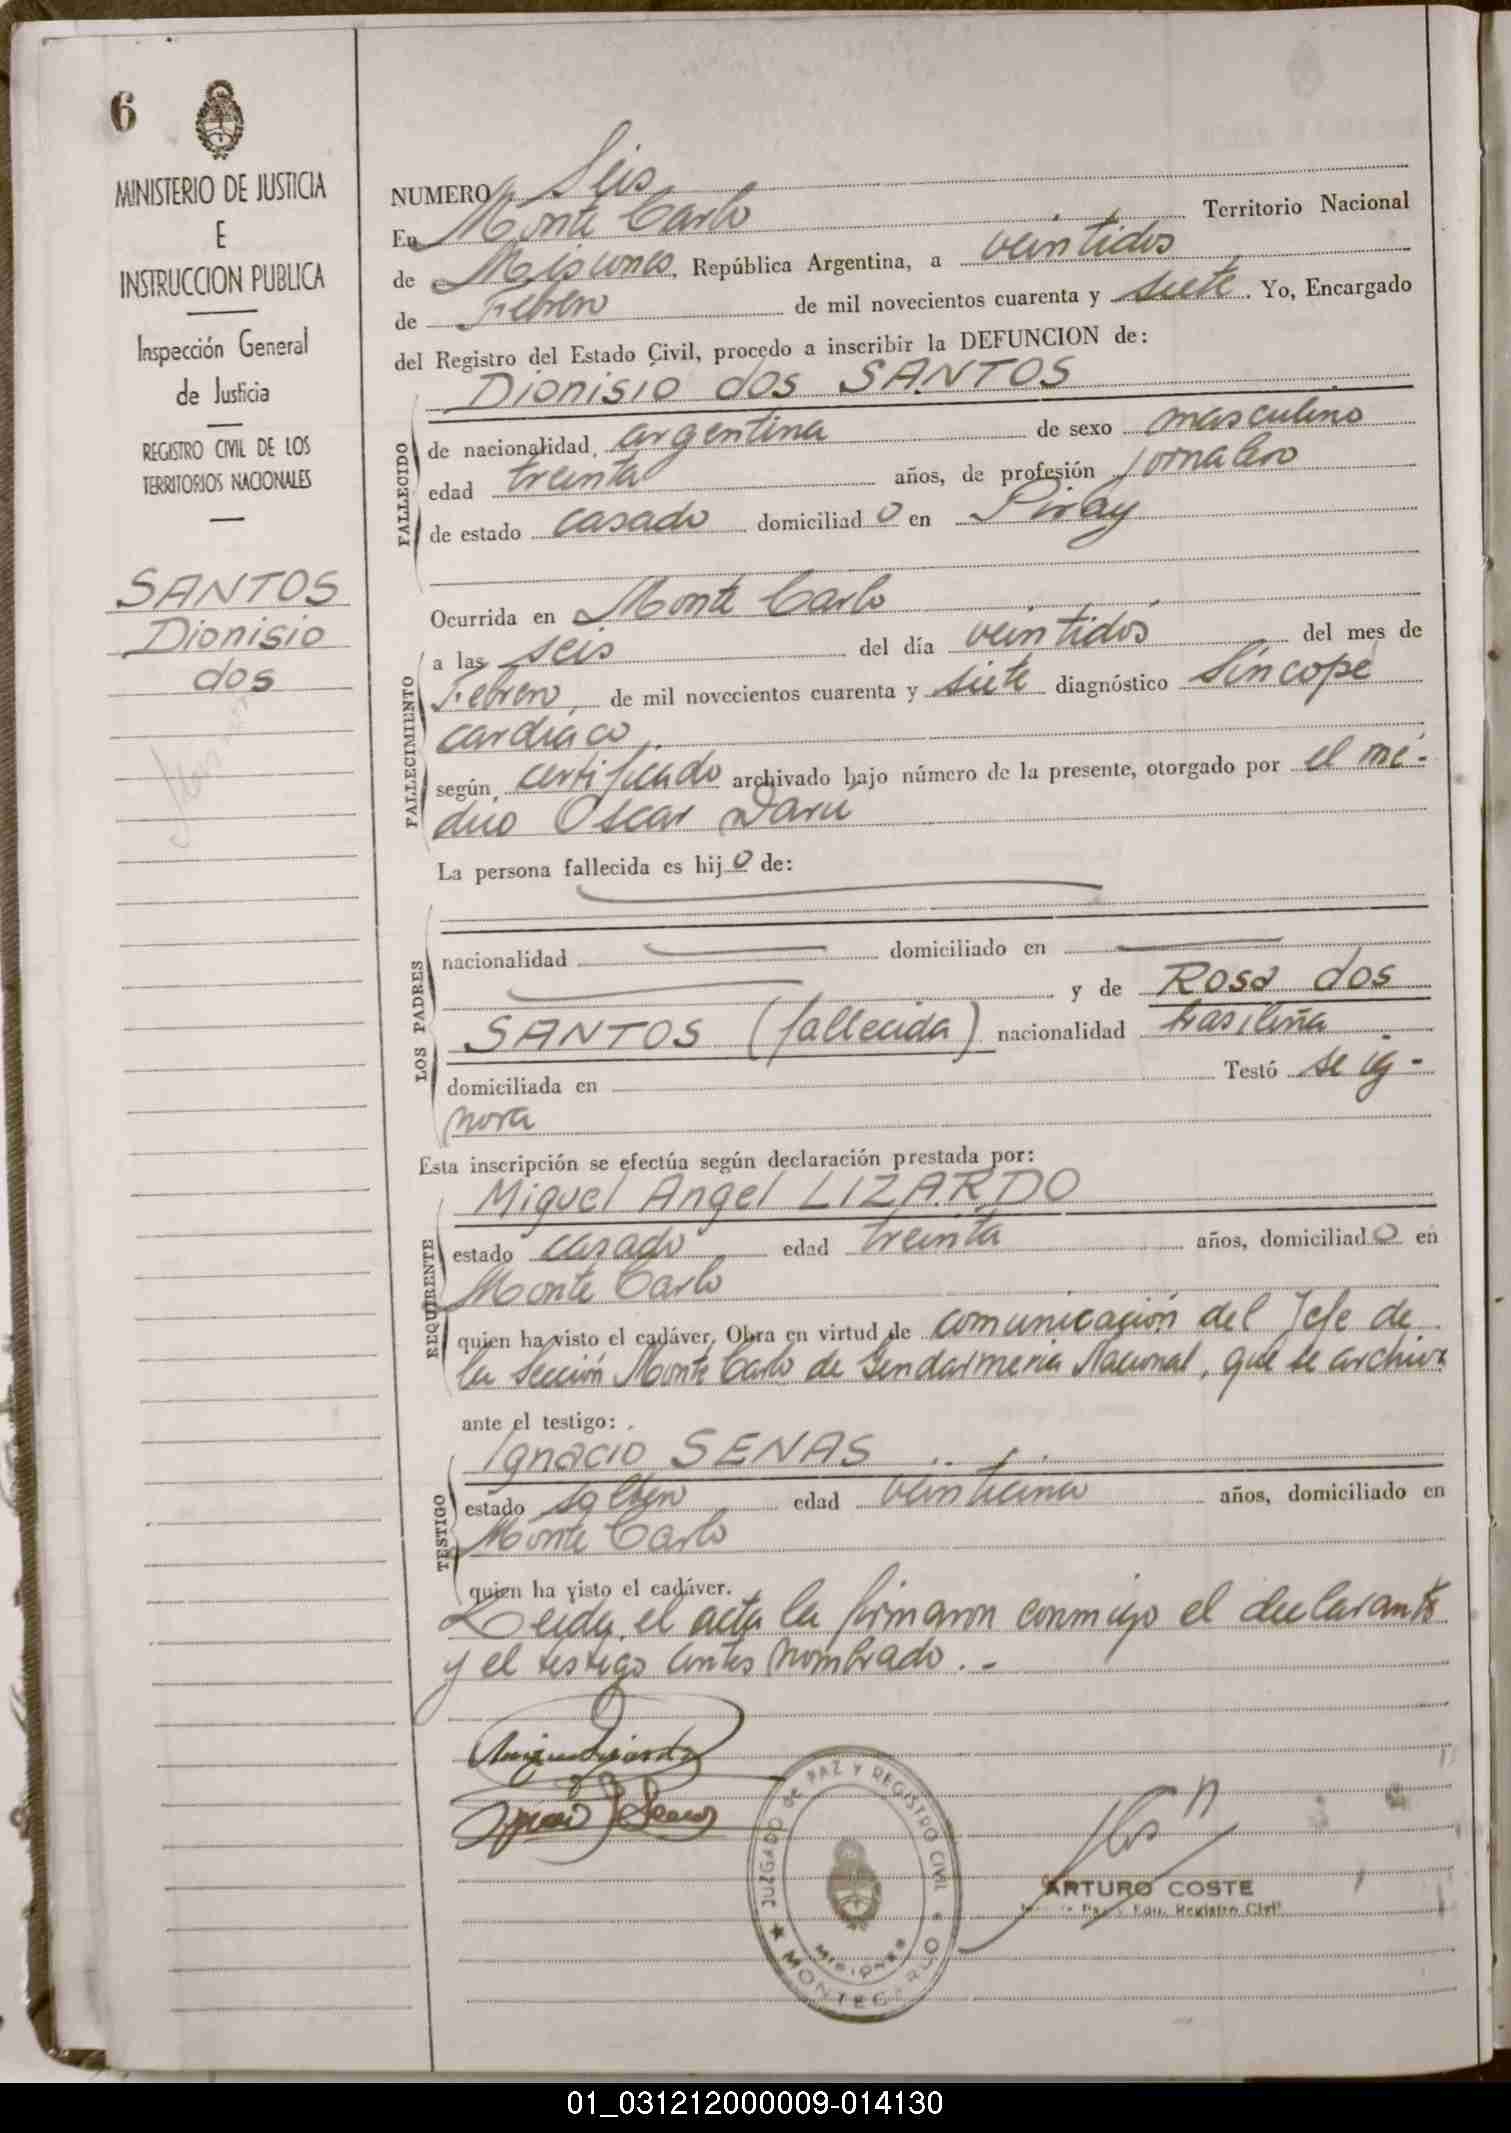 6
MINISTERIO DE JUSTICIA
E
INSTRUCCION PUBLICA
Inspección General
de Justicia
REGISTRO CIVIL DE LOS
TERRITORIOS NACIONALES
SANTOS
Dionisio
dos
NUMERO Seis
En Monte Carlo Territorio Nacional
de Misiones, República Argentina, a veintidos
de Febrero de mil novecientos cuarenta y siete. Yo, Encargado
del Registro del Estado Civil, procedo a inscribir la DEFUNCION de:
Dionisio dos SANTOS
FALLECIDO
de nacionalidad, argentina de sexo masculino
edad treinta años, de profesión jornalero
de estado casado domiciliado en Piray
Ocurrida en Monte Carlo
FALLECIMIENTO
a las seis del día veintidós del mes de
Febrero, de mil novecientos cuarenta y siete diagnóstico Síncope
cardiaco
según, certificado archivado bajo número de la presente, otorgado por el mé-
dico Oscar Darú
La persona fallecida es hijo de:
LOS PADRES
nacionalidad domiciliado en
y de Rosa dos
SANTOS (fallecida) nacionalidad brasileña
domiciliada en Testó se ig-
nora
Esta inscripción se efectúa según declaración prestada por:
Miguel Angel LIZARDO
REQUIRENTE
estado casado edad treinta años, domiciliado en
Monte Carlo
quien ha visto el cadáver, Obra en virtud de comunicación del Jefe de
la Sección Monte Carlo de Gendarmeria Nacional, que se archiva
ante el testigo:
Ignacio SENAS
TESTIGO
estado soltero edad veinticinco años, domiciliado en
Monte Carlo
quien ha visto el cadáver.
Leida el acta la firmaron conmigo el declarante
y el testigo antes nombrado.-
JUZGADO DE PAZ Y REGISTRO CIVIL
MISIONES
MONTECARLO
ARTURO COSTE
Registro Civil
01_031212000009-014130